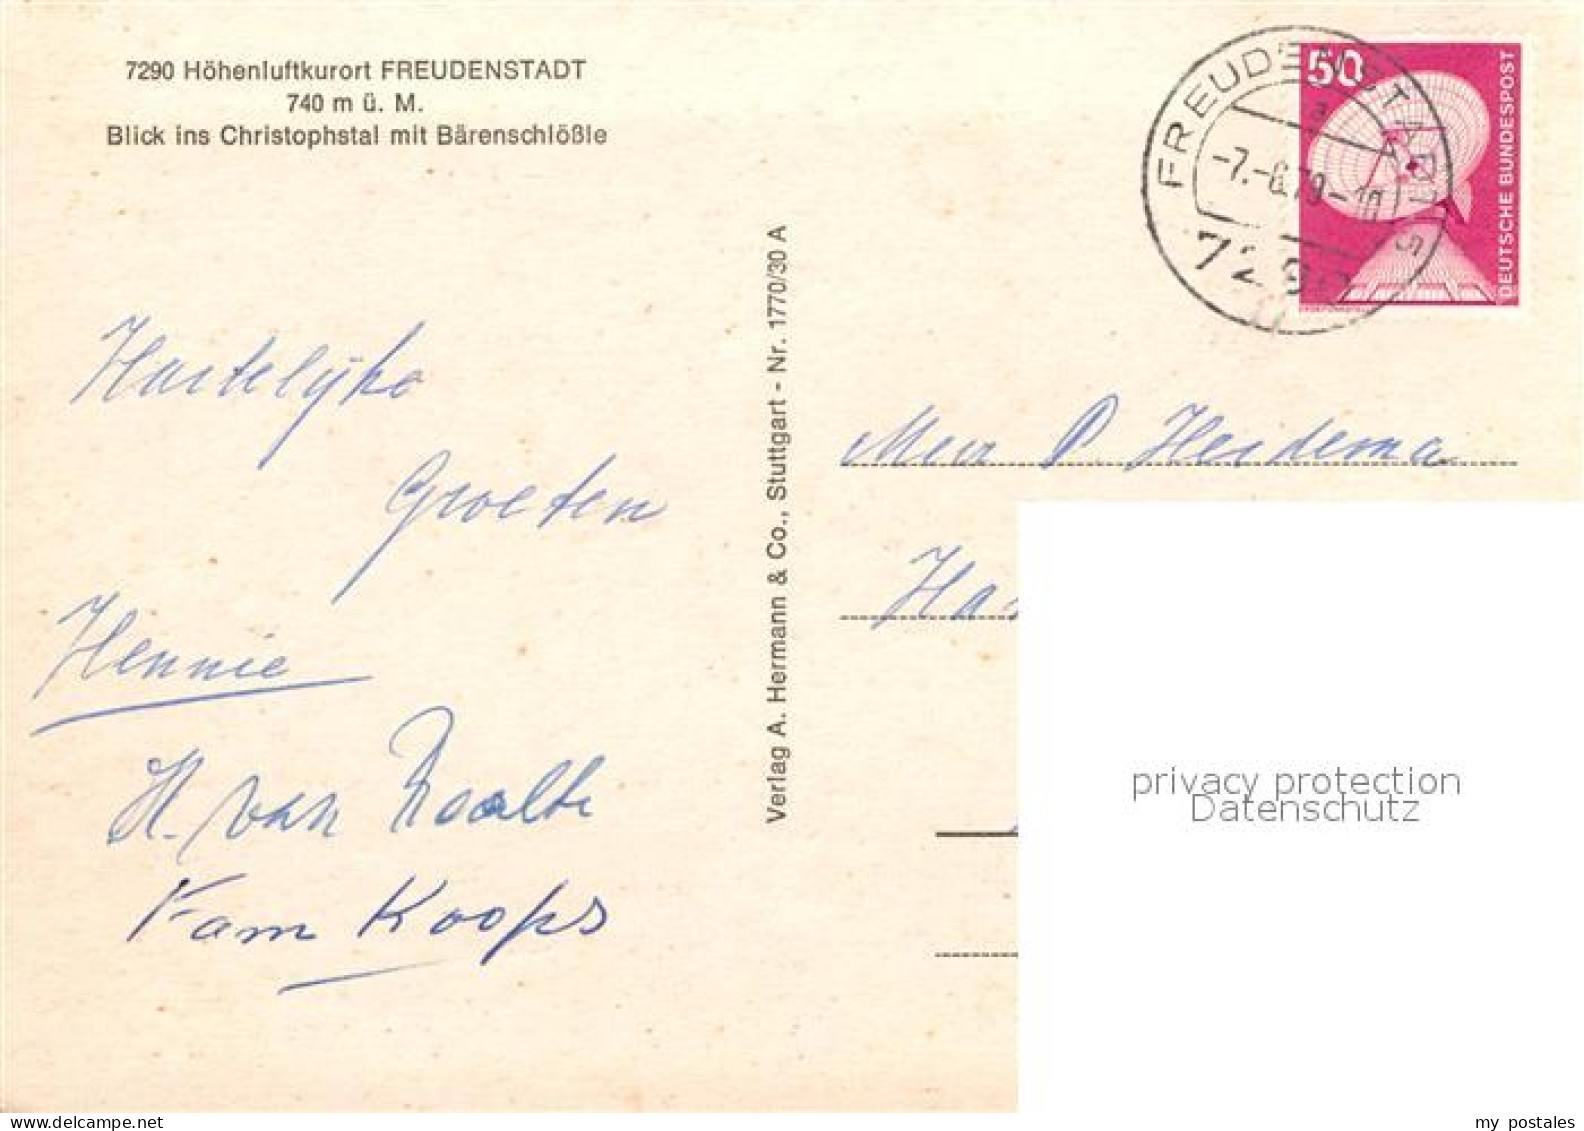 7290 Höhenluftkurort FREUDENSTADT
740 m ü. M.
Blick ins Christophstal mit Bärenschlößle
FREUDENSTADT
-7.-6.79-10
7290
50
DEUTSCHE BUNDESPOST
Verlag A. Hermann & Co., Stuttgart - Nr. 1770/30 A
Hartelijke
Groeten
Hennie
H. van Raalte
Fam Koops
P. Heidema
privacy protection
Datenschutz
my-postales.com
my postales